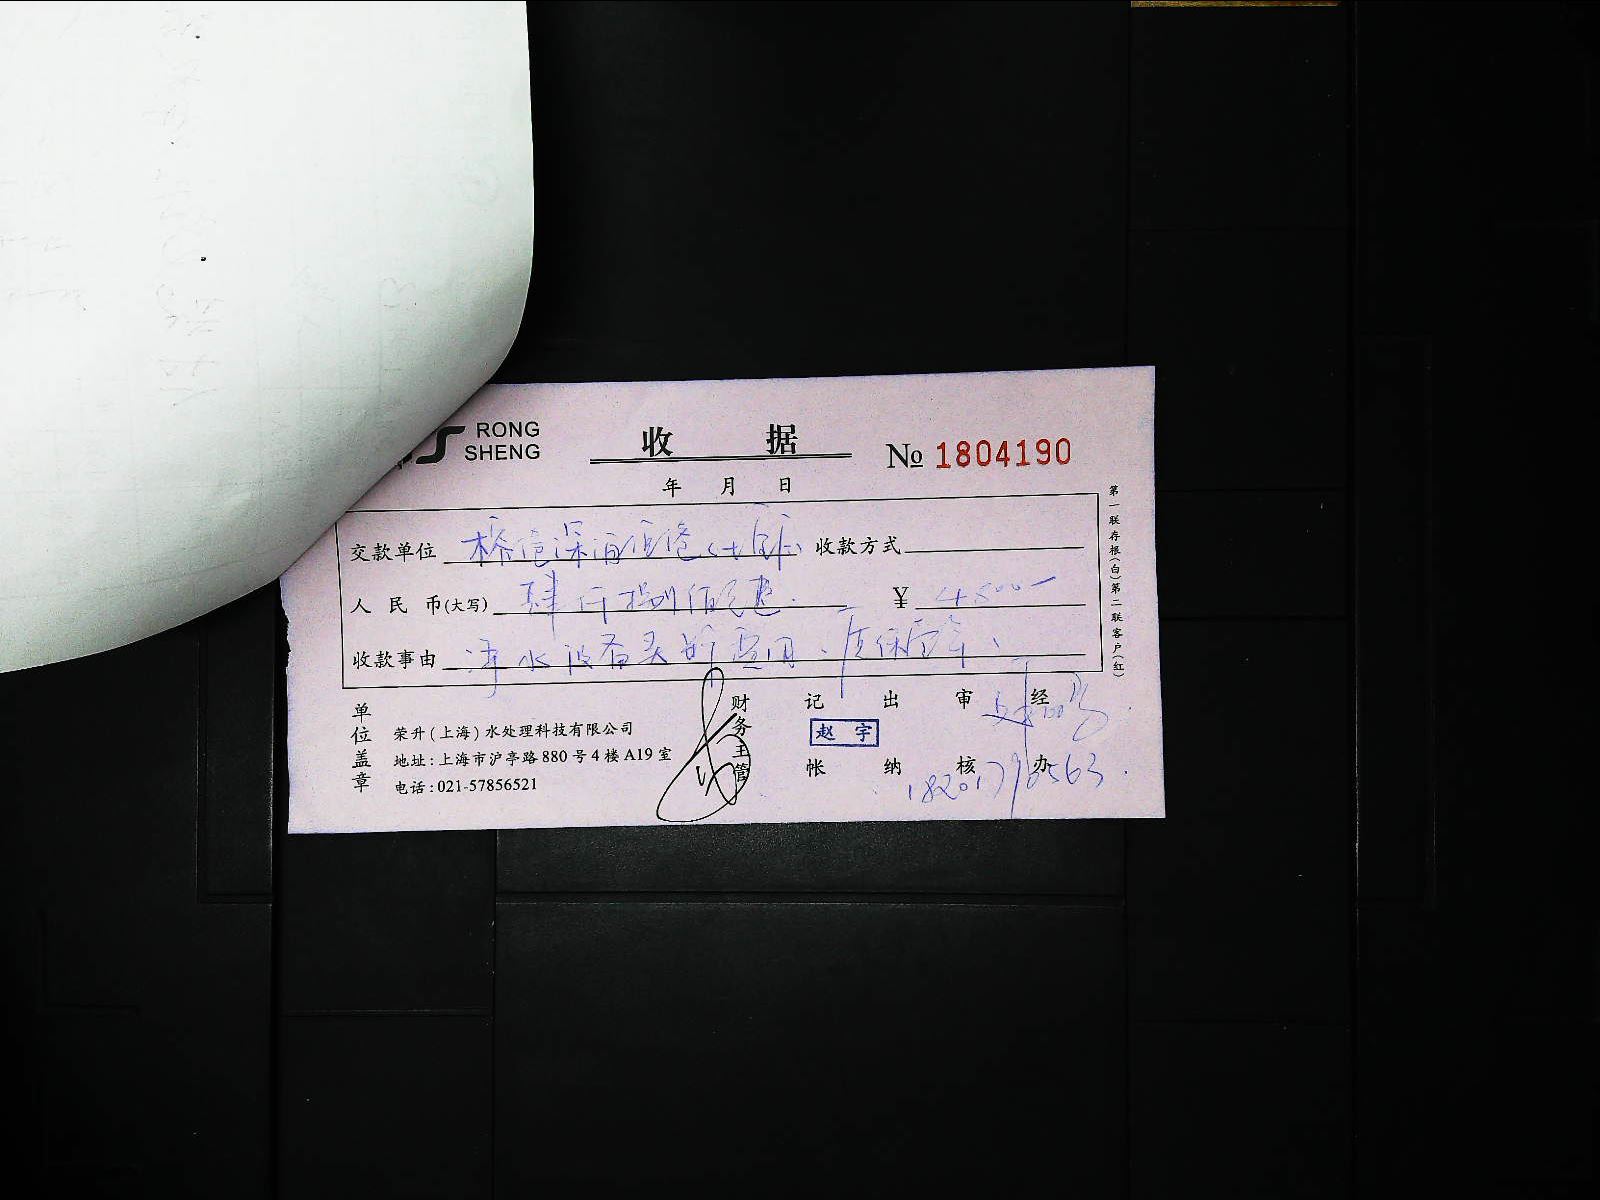 RONG
SHENG
收 据
№ 1804190
年 月 日
交款单位
收款方式
人民币(大写) 肆仟捌佰元
¥ 4800
收款事由 净水设备 费用、质保
第一联存根(白)第二联客户(红)
单位盖章
荣升(上海)水处理科技有限公司
地址:上海市沪亭路880号4楼A19室
电话:021-57856521
财务主管
记帐
出纳
审核
经办
赵宇